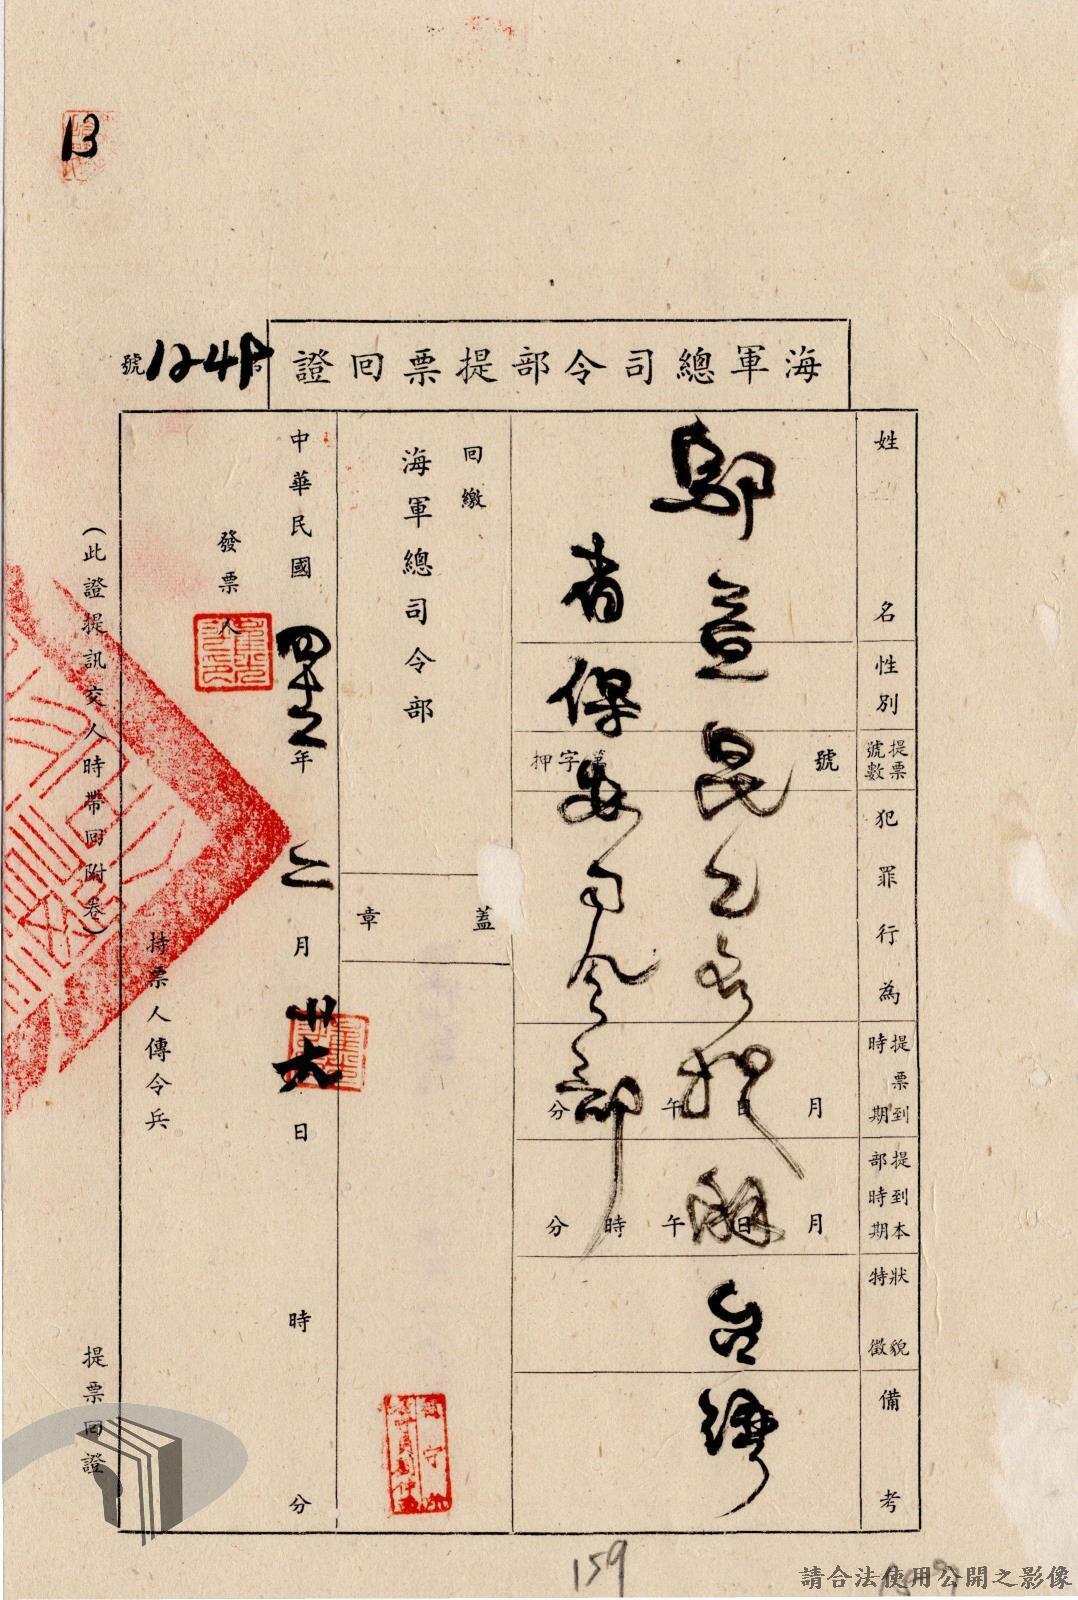 13
海軍總司令部提票回證
號 1248
姓名
性別
提票號數
犯罪行為
提票到時期
提到本部時期
狀貌特徵
備考
鄔宣昆乙名押解台灣
省保安司令部
號
字押
月日午分
月日午時分
回繳
海軍總司令部
蓋章
中華民國四十二年二月廿六日時分
發票人
持票人傳令兵
(此證提訊交人時帶回附卷)
提票回證
159
請合法使用公開之影像